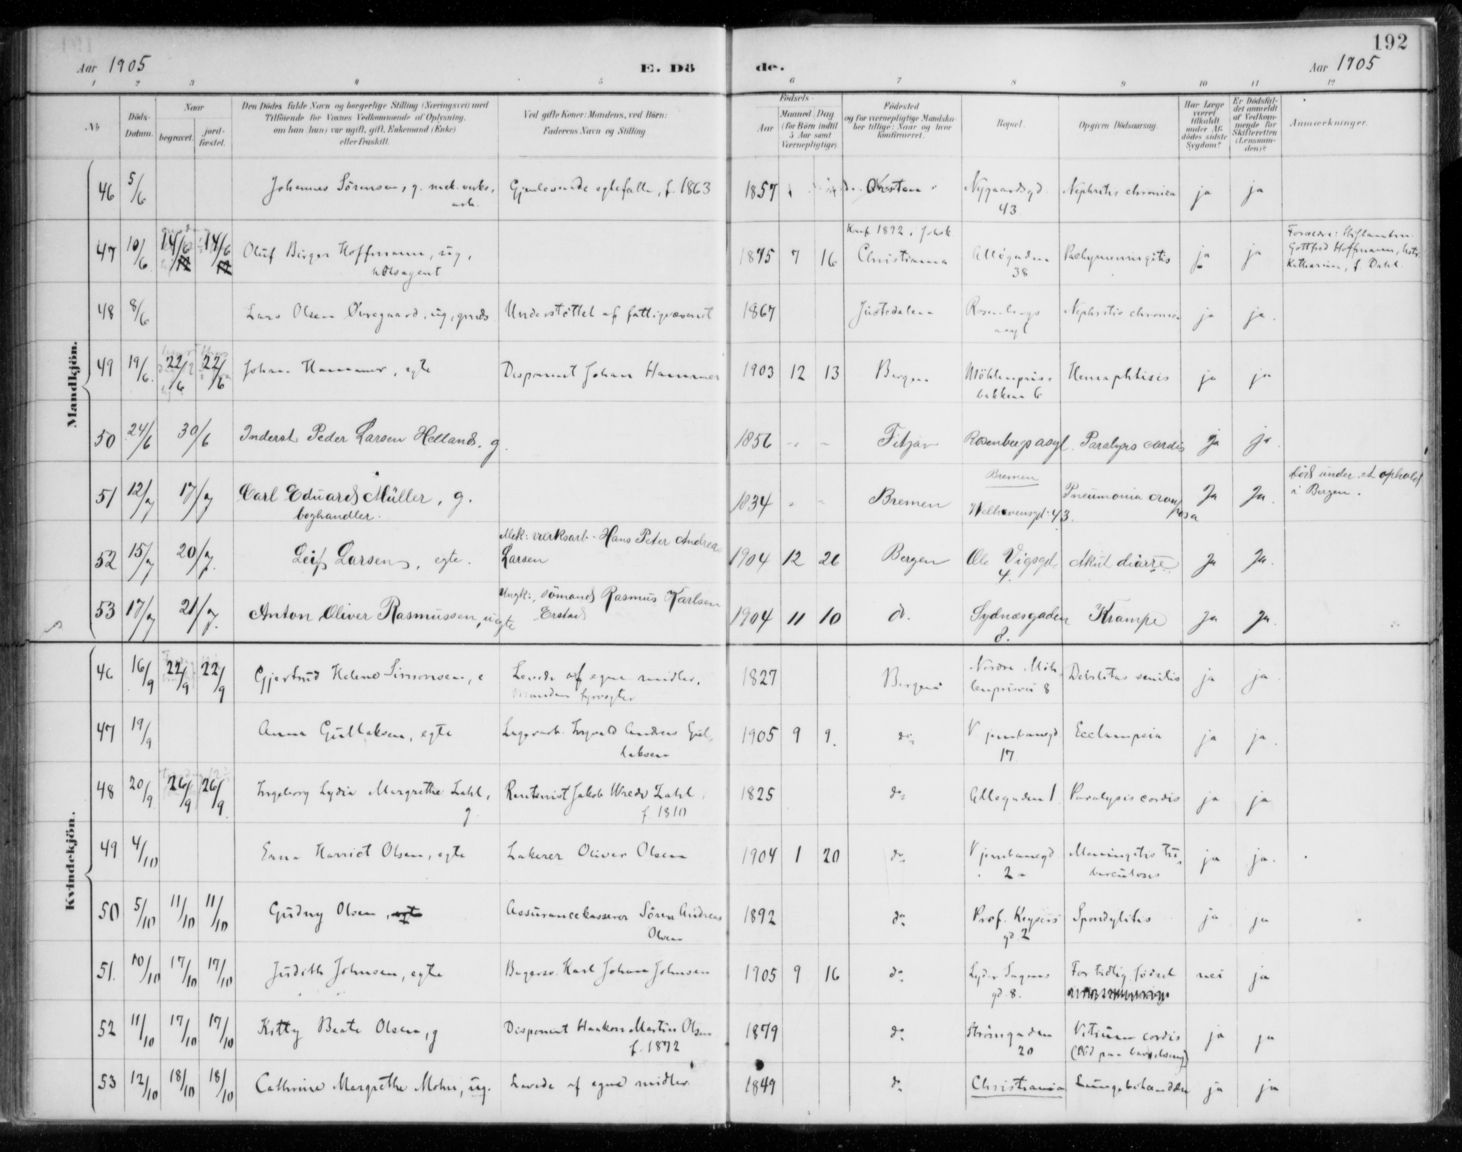 192
Aar 1905 E. Dö de. Aar 1905
1 2 3 4 5 6 7 8 9 10 11 12
№ Döds-Datum. Naar begravet. jordfæstet. Den Dödes fulde Navn og borgerlige Stilling (Næringsvei) med Tilföiende for Voxnes Vedkommende af Oplysning, om han (hun) var ugift, gift, Enkemand (Enke) eller fraskilt. Ved gifte Koner: Mandens, ved Börn: Faderens Navn og Stilling Födsels- Aar Maaned Dag (for Börn indtil 5 Aar samt Værnepligtige) Födested og for værnepligtige Mandskaber tillige: Naar og hvor konfirmeret. Bopæl. Opgiven Dödsaarsag. Har Læge været tilkaldt under Afdödes sidste Sygdom? Er Dödsfaldet anmeldt af Vedkommende for Skifteretten (Lensmanden)? Anmærkninger.
Mandkjön.
46 5/6 Johannes Sörensen, g. mek. verks. arb. Gjenlevende egtefælle, f. 1863 1857 Nygaardsgd. 43 Nephritis chronica ja ja
47 10/6 14/6 14/6 Oluf Birger Hoffmann, ug., Konf. 1892 i 1875 7 16 Christiania Allégaden 38 ja ja Forældre: Gottfried Hoffmann, Katharina, f. Dahl.
48 8/6 Lars Olsen Övregaard, ug., Understöttet af fattigvæsenet 1867 Justedalen Rosenbergs asyl Nephritis chronica ja ja.
49 19/6. 22/6 22/6 Johan Hammer, egte Disponent Johan Hammer 1903 12 13 Bergen Möhlenpris bakken 6 Hemophtisis ja ja
50 24/6 30/6 Inderst Peder Larsen Helland, g. 1856 - - Fitjar Rosenbergs asyl. Paralysis cordis ja ja.
51 12/7 17/7 Carl Eduard Müller, g. boghandler. 1834 - - Bremen Bremen Welhavensgd. 43. Pneumonia crouposa Ja Ja. död under et ophold i Bergen.
52 15/7 20/7. Leif Larsen, egte. Mek. verksarb. Hans Peter Andreas Larsen 1904 12 26 Bergen Ole Vigsgd. 4. Akut diarre Ja Ja.
53 17/7 21/7. Anton Oliver Rasmussen, uegte Ungk., sömand Rasmus Karlsen Erstad 1904 11 10 do. Sydnæsgaden 8. Krampe Ja Ja.
Kvindekjön.
46 16/9 22/9 22/9 Gjertrud Helene Simonsen, e Levede af egne midler. Manden fyrvogter 1827 Bergen Nordre Möhlenprisvei 8 Debilitas senilis ja ja
47 19/9 Anna Gullaksen, egte Lagerarb. Ingvald Andreas Gullaksen 1905 9 9. do. 17 Ecclampsia ja ja.
48 20/9 26/9 26/9. Ingeborg Lydia Margrethe Zahl, g. Rentenist Jakob Wrede Zahl. f. 1810 1825 do. Allégaden 1 Paralysis cordis ja ja
49 4/10 Erna Harriet Olsen, egte Lakerer Oliver Olsen 1904 1 20 do. 2 Meningitis tuberculosis ja ja.
50 5/10 11/10 11/10 Gudny Olsen, Assurancekasserer Sören Andreas Olsen 1892 do. Prof. Keysers gd 2 Spondylitis ja ja
51. 10/10 17/10 17/10 Judith Johnsen, egte Bagersv. Karl Johan Johnsen 1905 9 16 do. Lyder Sagens gd. 8. For tidlig födsel nei ja
52 11/10 17/10 17/10 Kitty Beate Olsen, g Disponent Haakon Martin Olsen f. 1872 1879 do. Strömgaden 20 Vitium cordis ja ja
53 12/10 18/10 18/10 Cathrine Margrethe Mohn, ug. Levede af egne midler 1849 do. Christiania Lungebetændelse ja ja